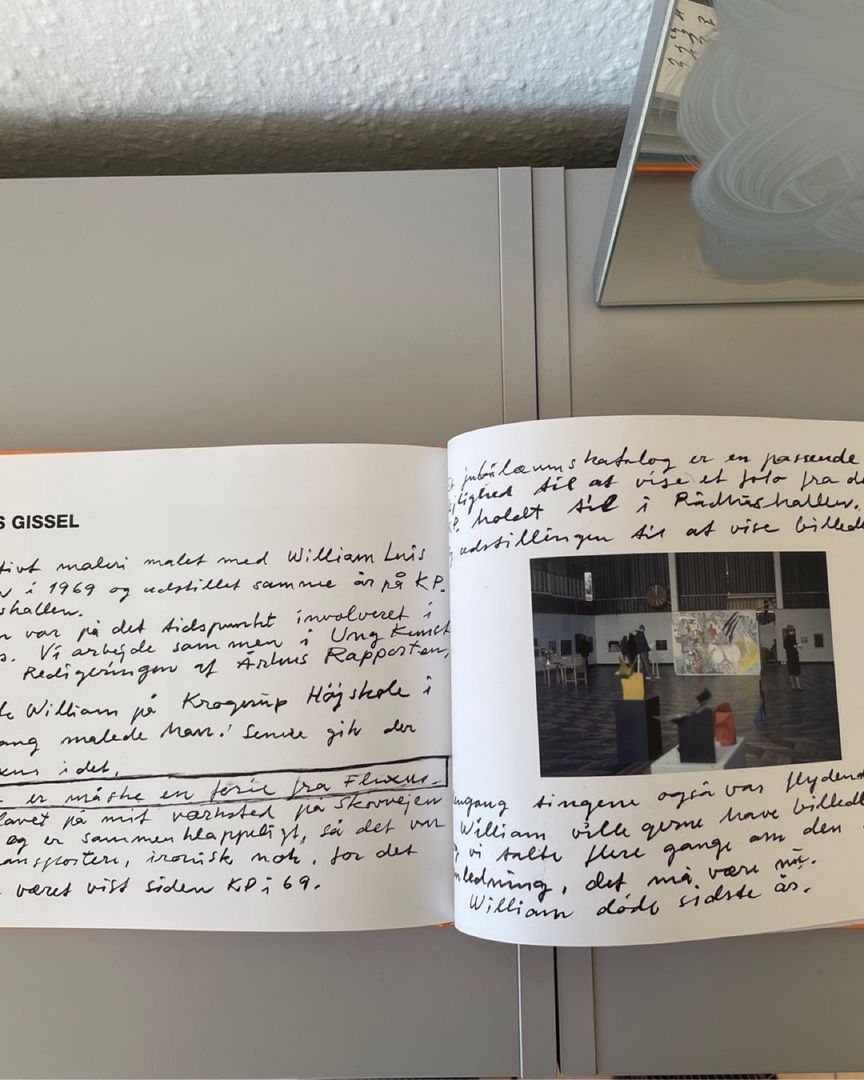 S GISSEL
tivt maleri malet med William Luis
i 1969 og udstillet samme år på KP.
shallen.
var på det tidspunkt involveret i
s. Vi arbejde sammen i Ung Kunst
Redigeringen af Århus Rapporten,
William på Krogerup Højskole i
ang malede han! Senere gik der
xus i det.
er måske en ferie fra Fluxus.
lavet på mit værksted på Skovvejen
og er sammenklappeligt, så det var
ansportere, ironisk nok, for det
været vist siden KP i 69.
jubilæumskatalog er en passende
lighed til at vise et foto fra de
KP. holdt til i Rådhushallen.
udstillingen til at vise billede
engang tingene også var flydend
William ville gerne have billed
vi talte flere gange om den
nledning, det må være nu.
William døde sidste år.